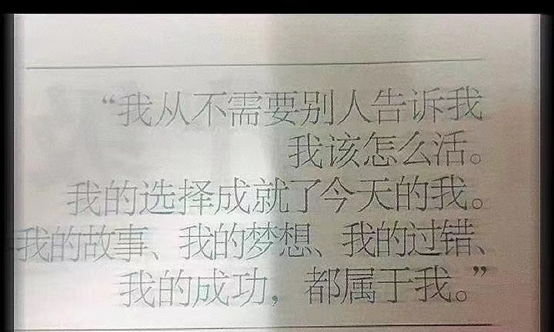 “我从不需要别人告诉我
我该怎么活。
我的选择成就了今天的我。
我的故事、我的梦想、我的过错、
我的成功，都属于我。”